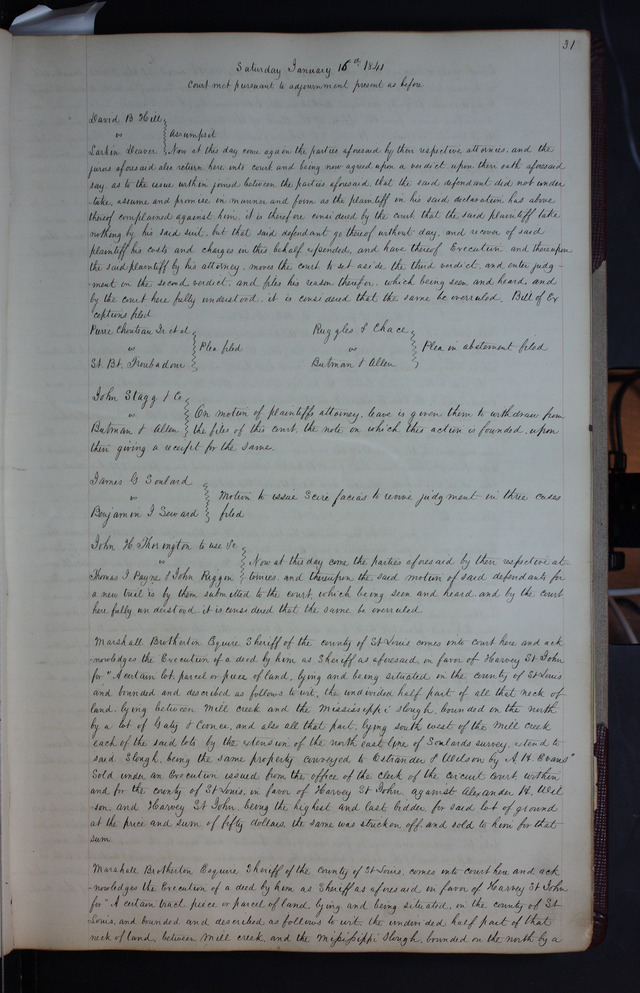 31
Saturday January 16th 1841
Court met pursuant to adjournment present as before
David B Hill
vs } Assumpsit
Larkin Deaver } Now at this day come again the parties aforesaid by their respective attornies, and the
jurors aforesaid also return here into court and being now agreed upon a verdict upon their oath aforesaid
say, as to the issue within joined between the parties aforesaid, that the said defendant did not under
-take, assume and promise in manner and form as the plaintiff in his said declaration has above
thereof complained against him, it is therefore considered by the court that the said plaintiff take
nothing by his said suit, but that said defendant go thereof without day, and recover of said
plaintiff his costs and charges in this behalf expended, and have thereof Execution and thereupon
the said plaintiff by his attorney, moves the court to set aside the third verdict, and enter judg-
-ment on the second verdict, and files his reason therefor, which being seen and heard, and
by the court here fully understood, it is considered that the same be overruled. Bill of Ex
ceptions filed
Pierre Chouteau Jr et al
vs } Plea filed
St. Bt. Troubadour
Ruggles & Chace
vs } Plea in abatement filed
Butman & Allen
John Stagg & Co
vs } On motion of plaintiffs attorney, leave is given them to withdraw from
Butman & Allen } the files of this court, the note on which this action is founded, upon
their giving a receipt for the same.
James G Soulard
vs } Motion to issue Scire facias to revive judgment in three cases
Benjamin I Seward } filed
John H Thorington to use &c
vs } Now at this day come the parties aforesaid by their respective at
Thomas I Payne & John Riggin } tornies, and thereupon the said motion of said defendants for
a new trial is by them submitted to the court, which being seen and heard and by the court
here fully understood it is considered that the same be overruled.
Marshall Brotherton Esquire Sheriff of the county of St Louis comes into court here and ack
-nowledges the Execution of a deed by him as Sheriff as aforesaid, in favor of Harvey St John
for "A certain lot, parcel or piece of land, lying and being situated in the county of St Louis
and bounded and described as follows to wit, the undivided half part of all that neck of
land, lying between Mill creek and the Mississippi slough, bounded on the north
by a lot of Gaty & Coonce, and also all that part, lying south west of the Mill creek
each of the said lots by the extension of the north east lyne of Soulards survey, extend to
said Slough, being the same property conveyed to Ostrander & Wilson by A. H. Evans"
Sold under an Execution issued from the office of the clerk of the circuit court within
and for the county of St Louis, in favor of Harvey St John against Alexander H. Wil
son, and Harvey St John, being the highest and last bidder, for said lot of ground
at the price and sum of fifty dollars, the same was struck on off and sold to him for that
sum.
Marshall Brotherton Esquire Sheriff of the county of St Louis, comes into court here and ack
-nowledges the Execution of a deed by him as Sheriff as aforesaid in favor of Harvey St John
for "A certain tract, piece or parcel of land, lying and being situated, in the county of St
Louis, and bounded and described as follows to wit. the undivided half part of that
neck of land, between Mill creek, and the Mississippi Slough, bounded on the north by a